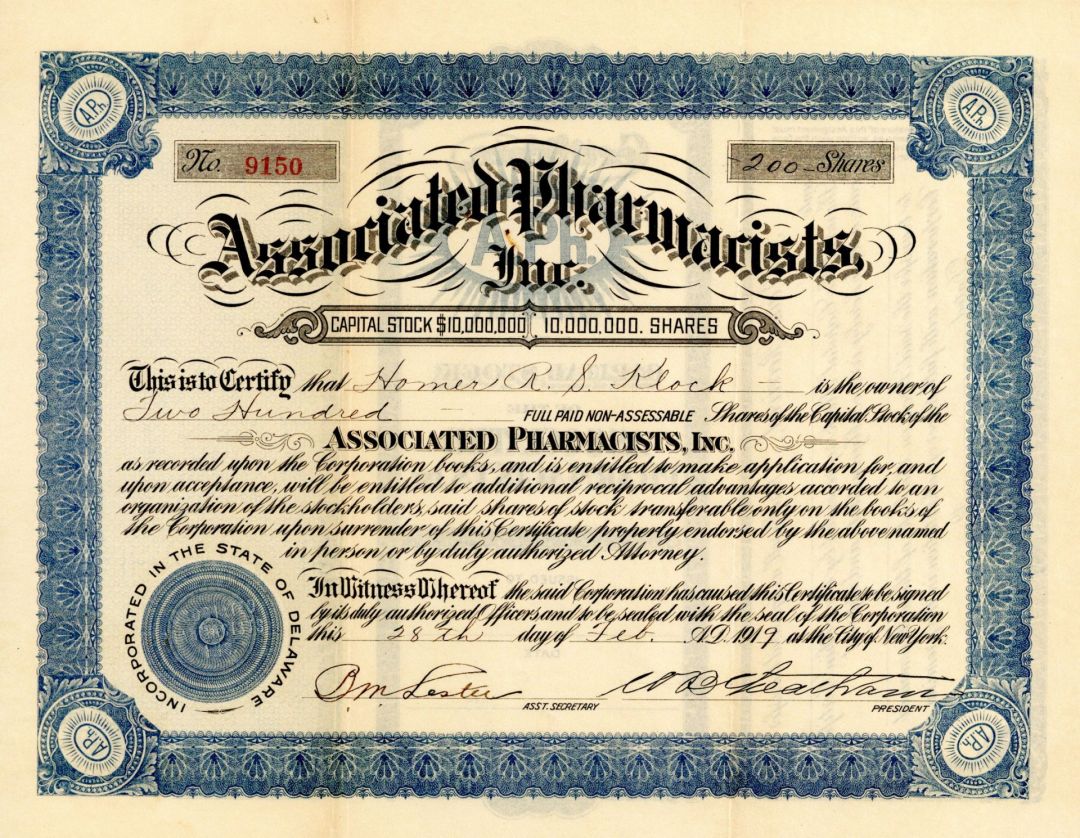 A.Ph.
A.Ph.
No. 9150
200 - Shares
Associated Pharmacists,
A.Ph.
Inc.
CAPITAL STOCK $10,000,000, 10,000,000. SHARES
This is to Certify that Homer R. S. Klock is the owner of
Two Hundred - FULL PAID NON-ASSESSABLE Shares of the Capital Stock of the
ASSOCIATED PHARMACISTS, INC.
as recorded upon the Corporation books, and is entitled to make application for, and
upon acceptance, will be entitled to additional reciprocal advantages accorded to an
organization of the stockholders, said shares of stock transferable only on the books of
the Corporation upon surrender of this Certificate properly endorsed by the above named
in person or by duly authorized Attorney.
INCORPORATED IN THE STATE OF DELAWARE
In Witness Whereof the said Corporation has caused this Certificate to be signed
by its duly authorized Officers and to be sealed with the seal of the Corporation
this 28th day of Feb. A.D. 1919 at the City of New York.
B M Lester
ASS'T. SECRETARY
PRESIDENT
A.Ph.
A.Ph.